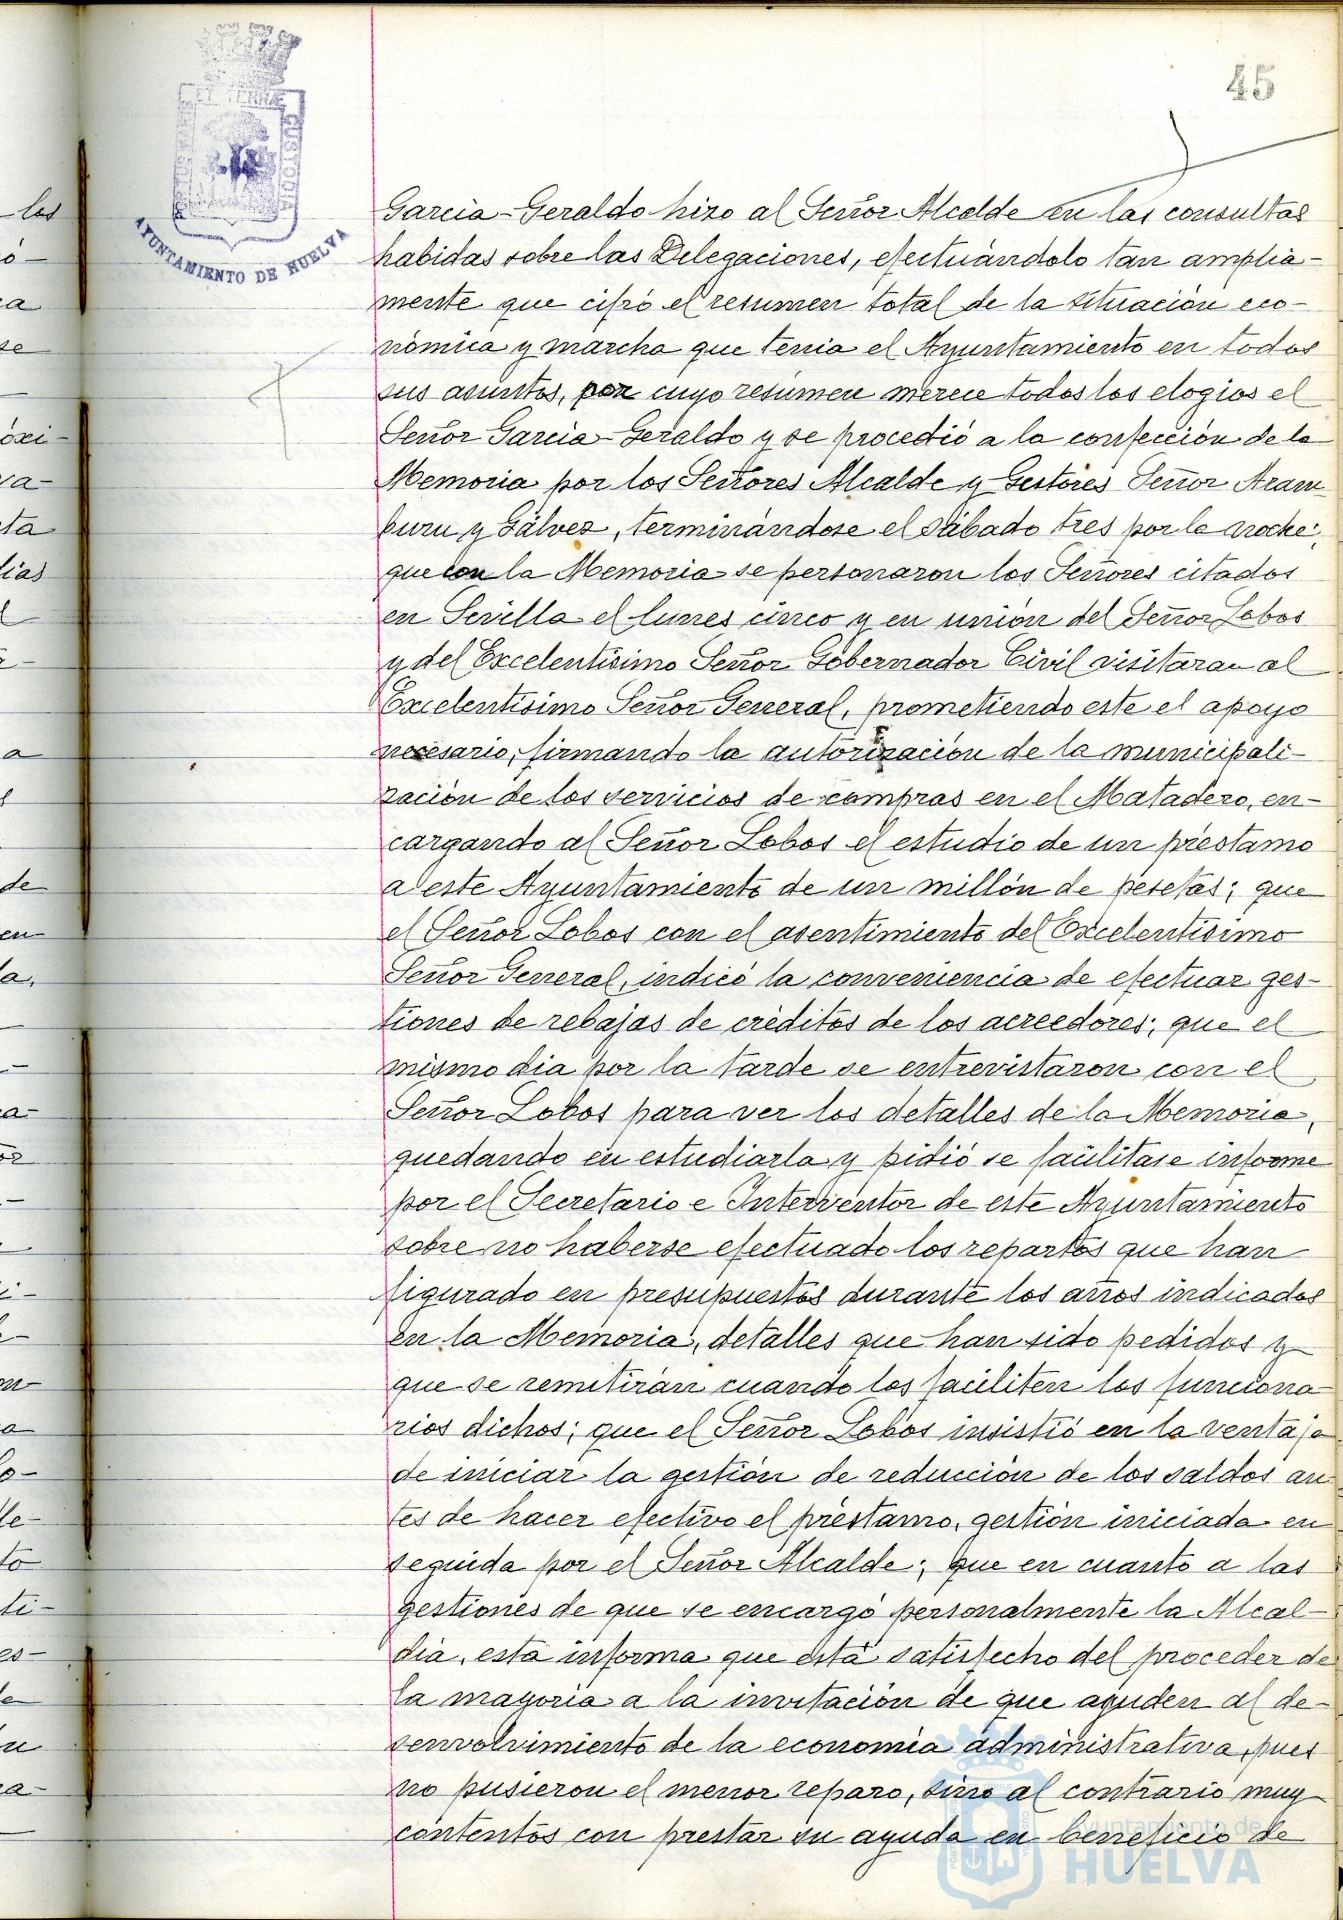 45
PORTUS MARIS ET TERRÆ CUSTODIA
AYUNTAMIENTO DE HUELVA
Garcia-Geraldo hizo al Señor Alcalde en las consultas
habidas sobre las Delegaciones, efectuándolo tan amplia-
mente que cifró el resumen total de la situación eco-
nómica y marcha que tenia el Ayuntamiento en todos
sus asuntos, por cuyo resúmen merece todos los elogios el
Señor Garcia-Geraldo y se procedió a la confección de la
Memoria por los Señores Alcalde y Gestores Señor Aram-
buru y Gálvez, terminándose el sábado tres por la noche;
que con la Memoria se personaron los Señores citados
en Sevilla el lunes cinco y en unión del Señor Lobos
y del Excelentisimo Señor Gobernador Civil visitaran al
Excelentisimo Señor General, prometiendo este el apoyo
necesario, firmando la autorización de la municipali-
zación de los servicios de compras en el Matadero, en-
cargando al Señor Lobos el estudio de un préstamo
a este Ayuntamiento de un millón de pesetas; que
el Señor Lobos con el asentimiento del Excelentisimo
Señor General, indicó la conveniencia de efectuar ges-
tiones de rebajas de créditos de los acreedores; que el
mismo dia por la tarde se entrevistaron con el
Señor Lobos para ver los detalles de la Memoria,
quedando en estudiarla y pidió se facilitase informe
por el Secretario e Interventor de este Ayuntamiento
sobre no haberse efectuado los repartos que han
figurado en presupuestos durante los años indicados
en la Memoria, detalles que han sido pedidos y
que se remitirán cuando los faciliten los funciona-
rios dichos; que el Señor Lobos insistió en la ventaja
de iniciar la gestión de reducción de los saldos an-
tes de hacer efectivo el préstamo, gestión iniciada en
seguida por el Señor Alcalde; que en cuanto a las
gestiones de que se encargó personalmente la Alcal-
dia, esta informa que está satisfecho del proceder de
la mayoria a la invitación de que ayuden al de-
senvolvimiento de la economia administrativa, pues
no pusieron el menor reparo, sino al contrario muy
contentos con prestar su ayuda en beneficio de
Ayuntamiento de
HUELVA